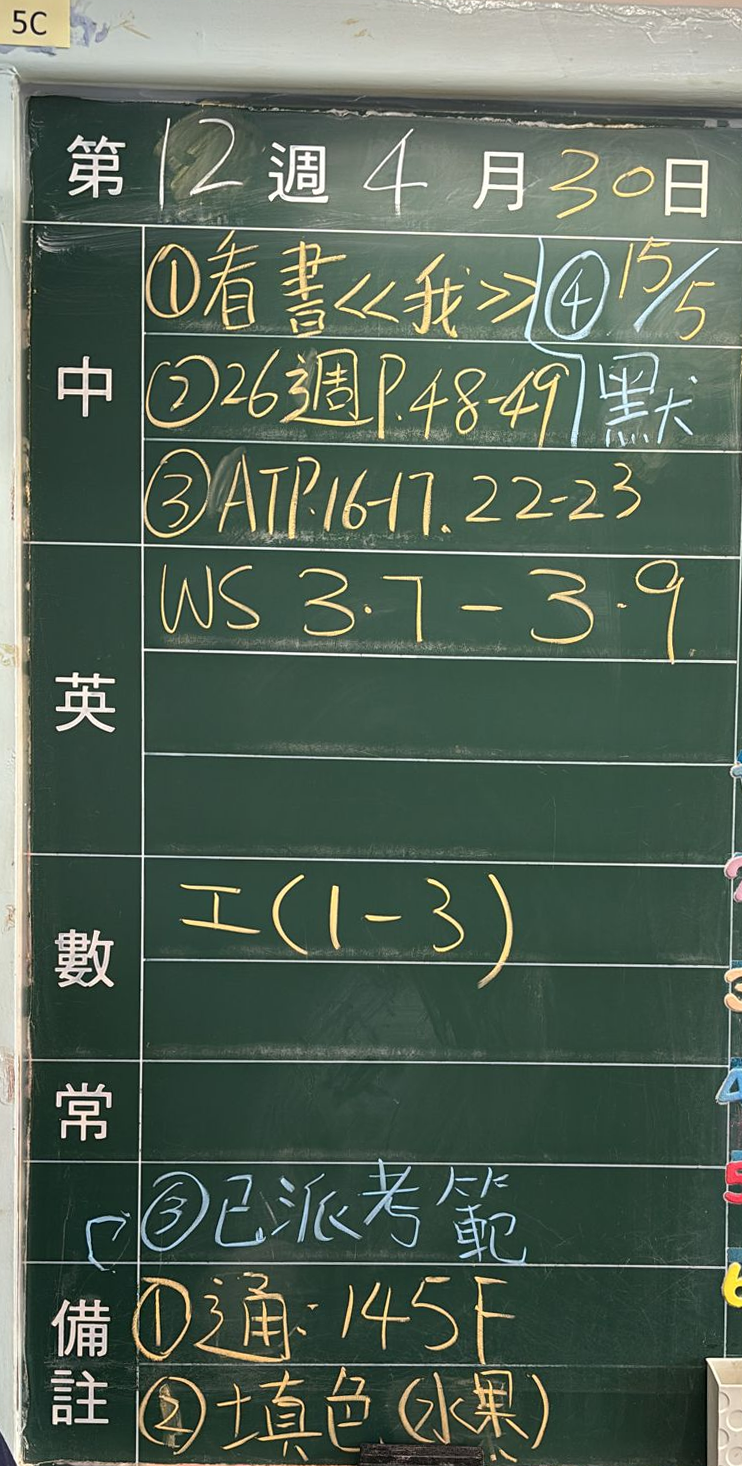 5C
第12週4月30日
中
①看書<<我>>
④15/5
②26週P.48-49
默
③ATP.16-17.22-23
英
WS 3.7-3.9
數
工(1-3)
常
③已派考範
備註
①通:145F
②填色(水果)